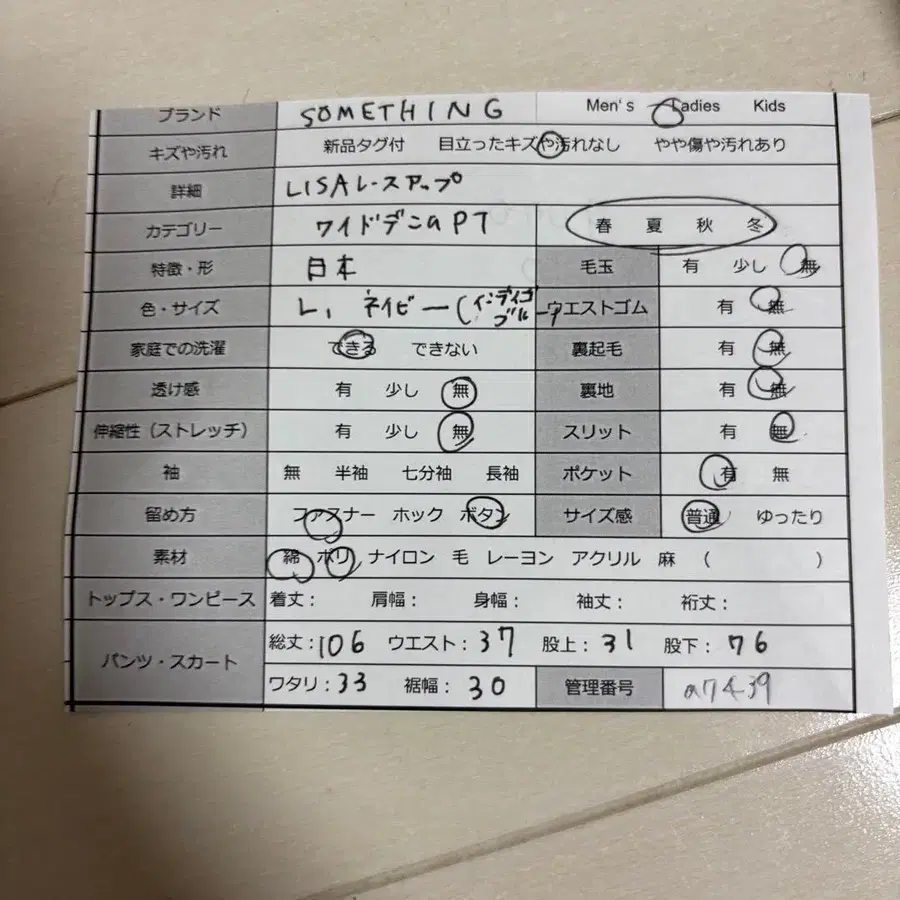 ブランド SOMETHING Men's Ladies Kids
キズや汚れ 新品タグ付 目立ったキズや汚れなし やや傷や汚れあり
詳細 LISAレースアップ
カテゴリー ワイドデニムPT 春 夏 秋 冬
特徴・形 日本 毛玉 有 少し 無
色・サイズ L, ネイビー(インディゴブルー ウエストゴム 有 無
家庭での洗濯 できる できない 裏起毛 有 無
透け感 有 少し 無 裏地 有 無
伸縮性(ストレッチ) 有 少し 無 スリット 有 無
袖 無 半袖 七分袖 長袖 ポケット 有 無
留め方 ファスナー ホック ボタン サイズ感 普通 ゆったり
素材 綿 ポリ ナイロン 毛 レーヨン アクリル 麻 ( )
トップス・ワンピース 着丈: 肩幅: 身幅: 袖丈: 裄丈:
パンツ・スカート 総丈:106 ウエスト:37 股上:31 股下:76
ワタリ:33 裾幅:30 管理番号 a7439